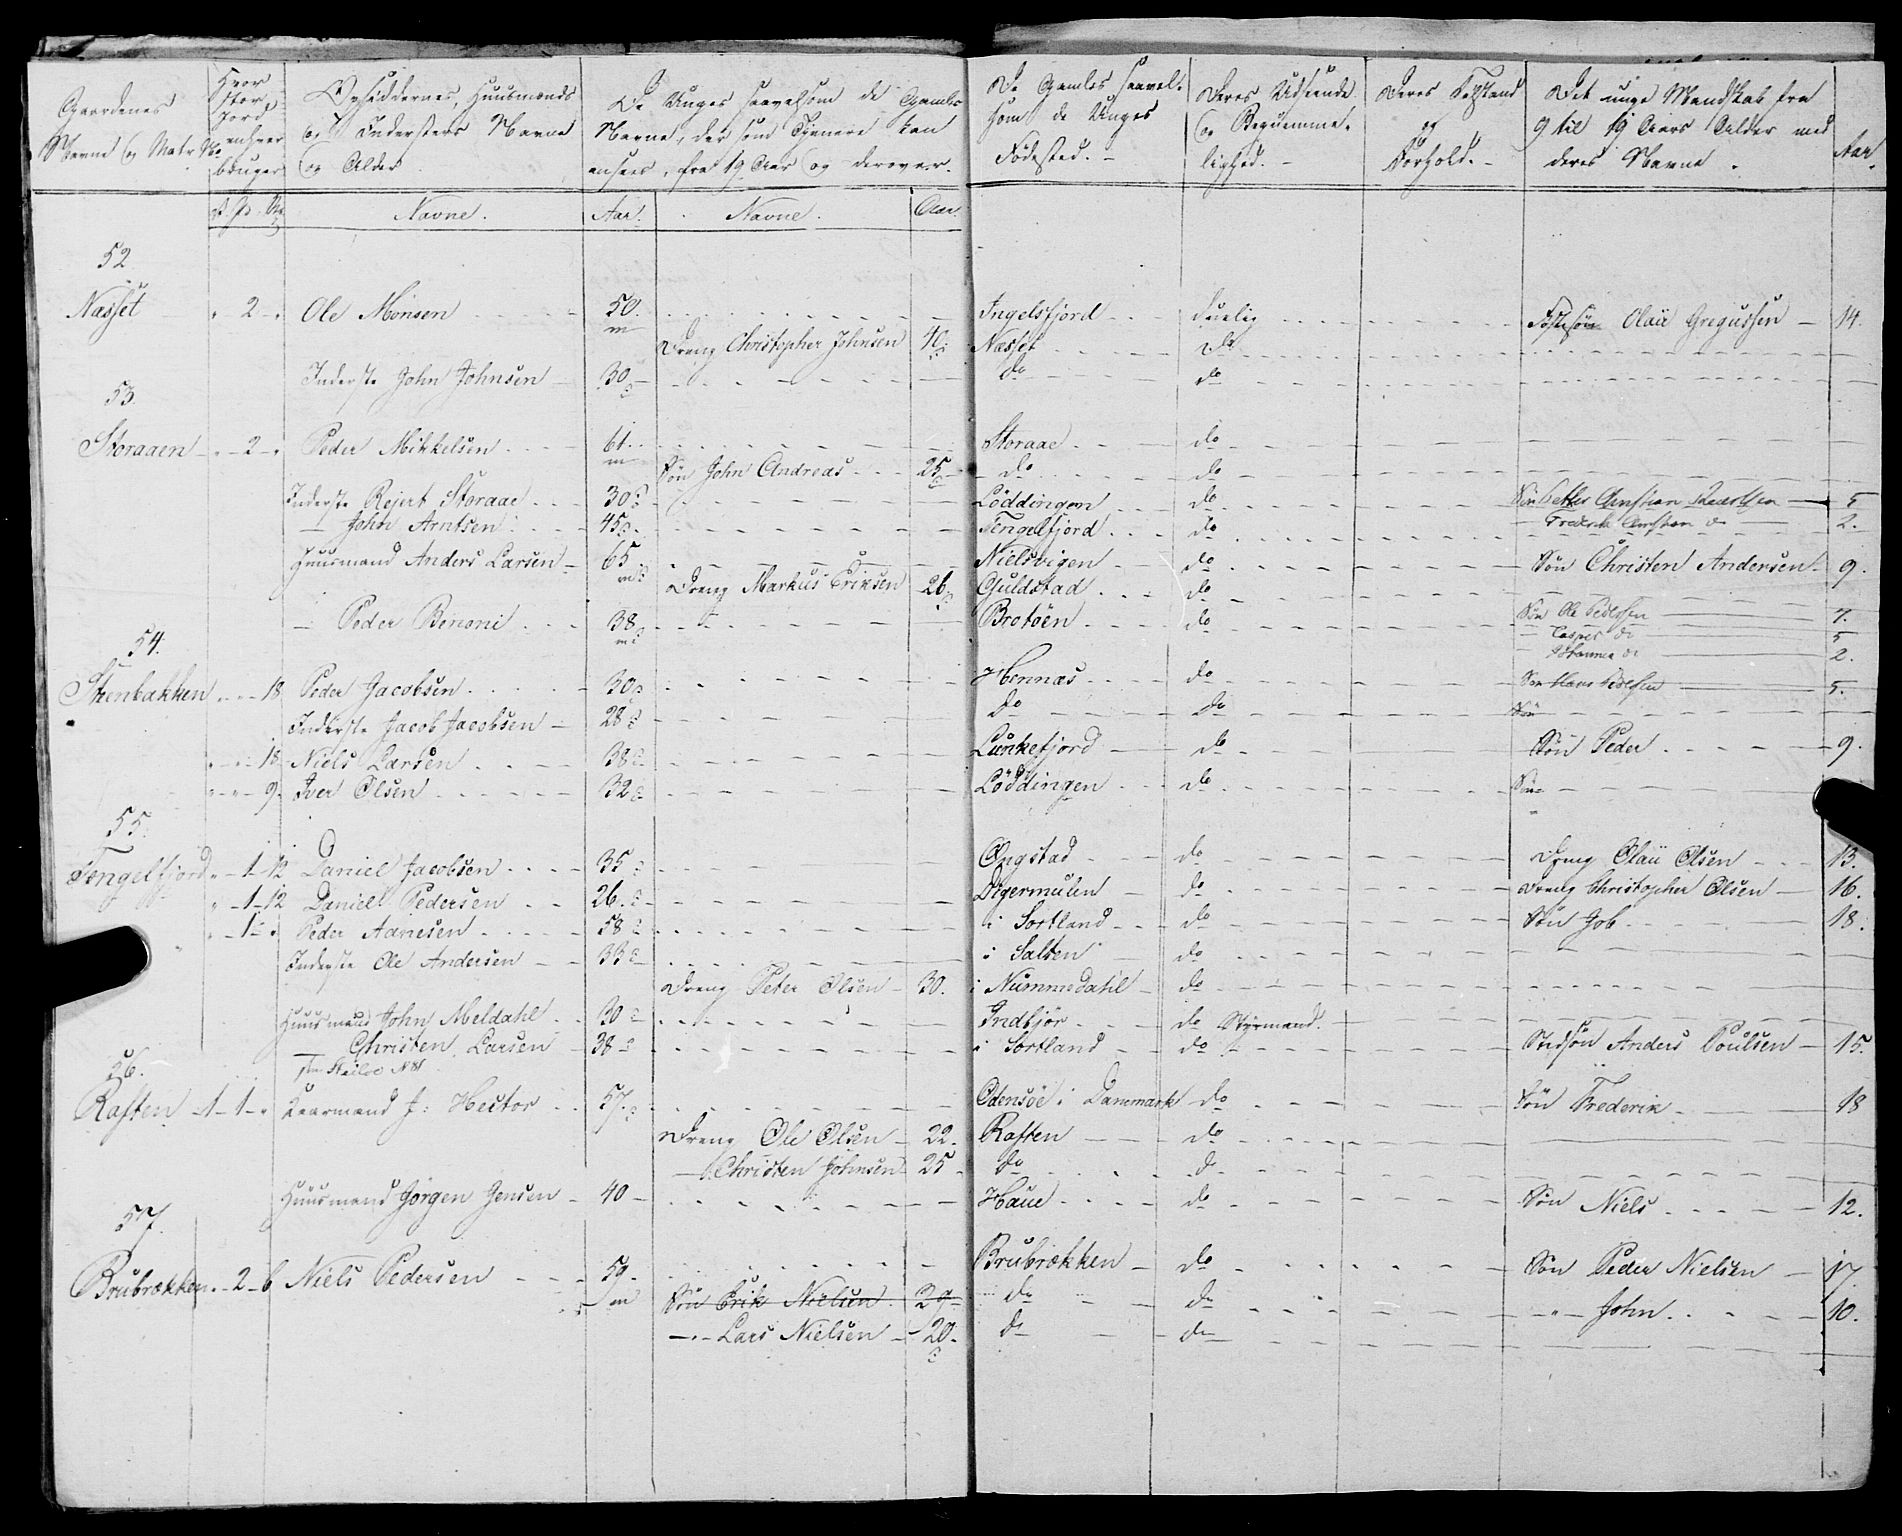 Gaardenes Navne og Matr No
Hvor stor Jord enhver bruger
Opsiddernes, Huusmænds og Indersters Navne og Alder
De Unges saavelsom de Gamles Navne, der som Tjenere kan ansees, fra 19 Aar og derover.
De Gamles saavelsom de Unges Fødested.
Deres Udseende og Beqvemmelighed.
Deres Tilstand og Forhold.
Det unge Mandskab fra 9 til 19 Aars Alder med deres Navne.
Aar.
Navne. Aar. Navne. Aar.
52
Næsset " 2 " Ole Monsen 50. m Ingelsfjord duelig Fostersøn Olaü Gregussen 14.
Dreng Christopher Johnsen 40. Næsset do
Inderste John Johnsen 30 do do
53.
Storaaen " 2 " Peder Mikkelsen 61. m Storaae do
Søn John Andreas 25 do do
Inderste Rejert Storaae 30 Löddingen do Søn Christian 5
— John Arntsen 45 Tengelfjord do Frederik Christian do 2.
Huusmand Anders Larsen 65 Nielsvigen do Søn Christen Andersen 9.
Dreng Markus Eriksen 26 Guldstad do
— Peder Benoni 38 Brotöen do Søn Ole Pedersen 7.
— Casper do 5
— Johannes do 2.
54.
Steenbakken " " 18 Peder Jacobsen 30 Hennæs do Søn Hans Pedersen 5.
Inderste Jacob Jacobsen 28 do do Søn
" " 18 Niels Larsen 38 Lunkefjord do Søn Peder 9.
" " 9. Iver Olsen 32 Löddingen do Søn
55.
Tengelfjord " 1 12 Daniel Jacobsen 35 Ongstad do Dreng Olaü Olsen 13.
" 1 12 Daniel Pedersen 26. Digermulen do Dreng Christopher Olsen 16.
" 1 " Peder Aanesen 58 i Sortland do Søn Job 18.
Inderste Ole Andersen 33 i Salten do
Dreng Peter Olsen 30. i Nummedahl do
Huusmand John Meldahl 30 Indbjör do Styrmand.
— Christen Larsen 38 i Sortland do Stedsøn Anders Poulsen 15.
56.
Raften 1 1 " J: Hector 57. Odensöe i Danmark do Søn Frederik 18
Dreng Ole Olsen 22. Raften do
— Christen Johnsen 25 do do
Huusmand Jörgen Jensen 40 Haue do Søn Niels 12.
57.
Brubrækken " 2 6 Niels Pedersen 59. m Brubrækken do Søn Peder Nielsen 17.
Søn Erik Nielsen 29 do do " John 10.
" Lars Nielsen 20. do do